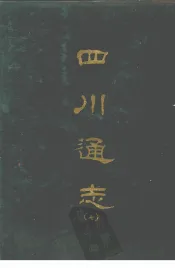 四川通志
(七)